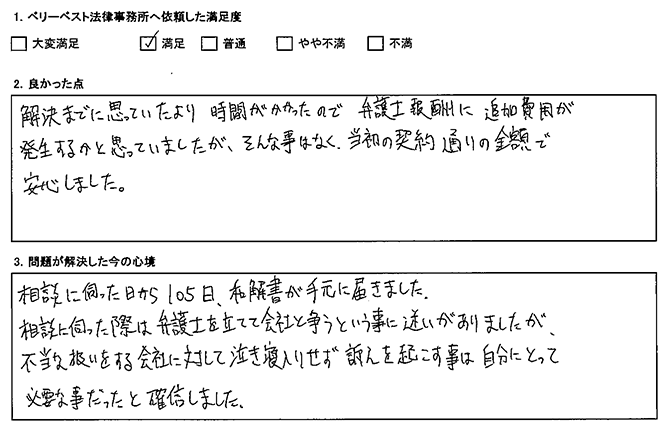 1. ベリーベスト法律事務所へ依頼した満足度
大変満足 満足 普通 やや不満 不満
2. 良かった点
解決までに思っていたより 時間がかかったので 弁護士報酬に 追加費用が
発生するかと思っていましたが、そんな事はなく、当初の契約通りの金額で
安心しました。
3. 問題が解決した今の心境
相談に伺った日から105日、和解書が手元に届きました。
相談に伺った際は弁護士を立てて会社と争うという事に迷いがありましたが、
不当な扱いをする会社に対して泣き寝入りせず 訴えを起こす事は自分にとって
必要な事だったと確信しました。